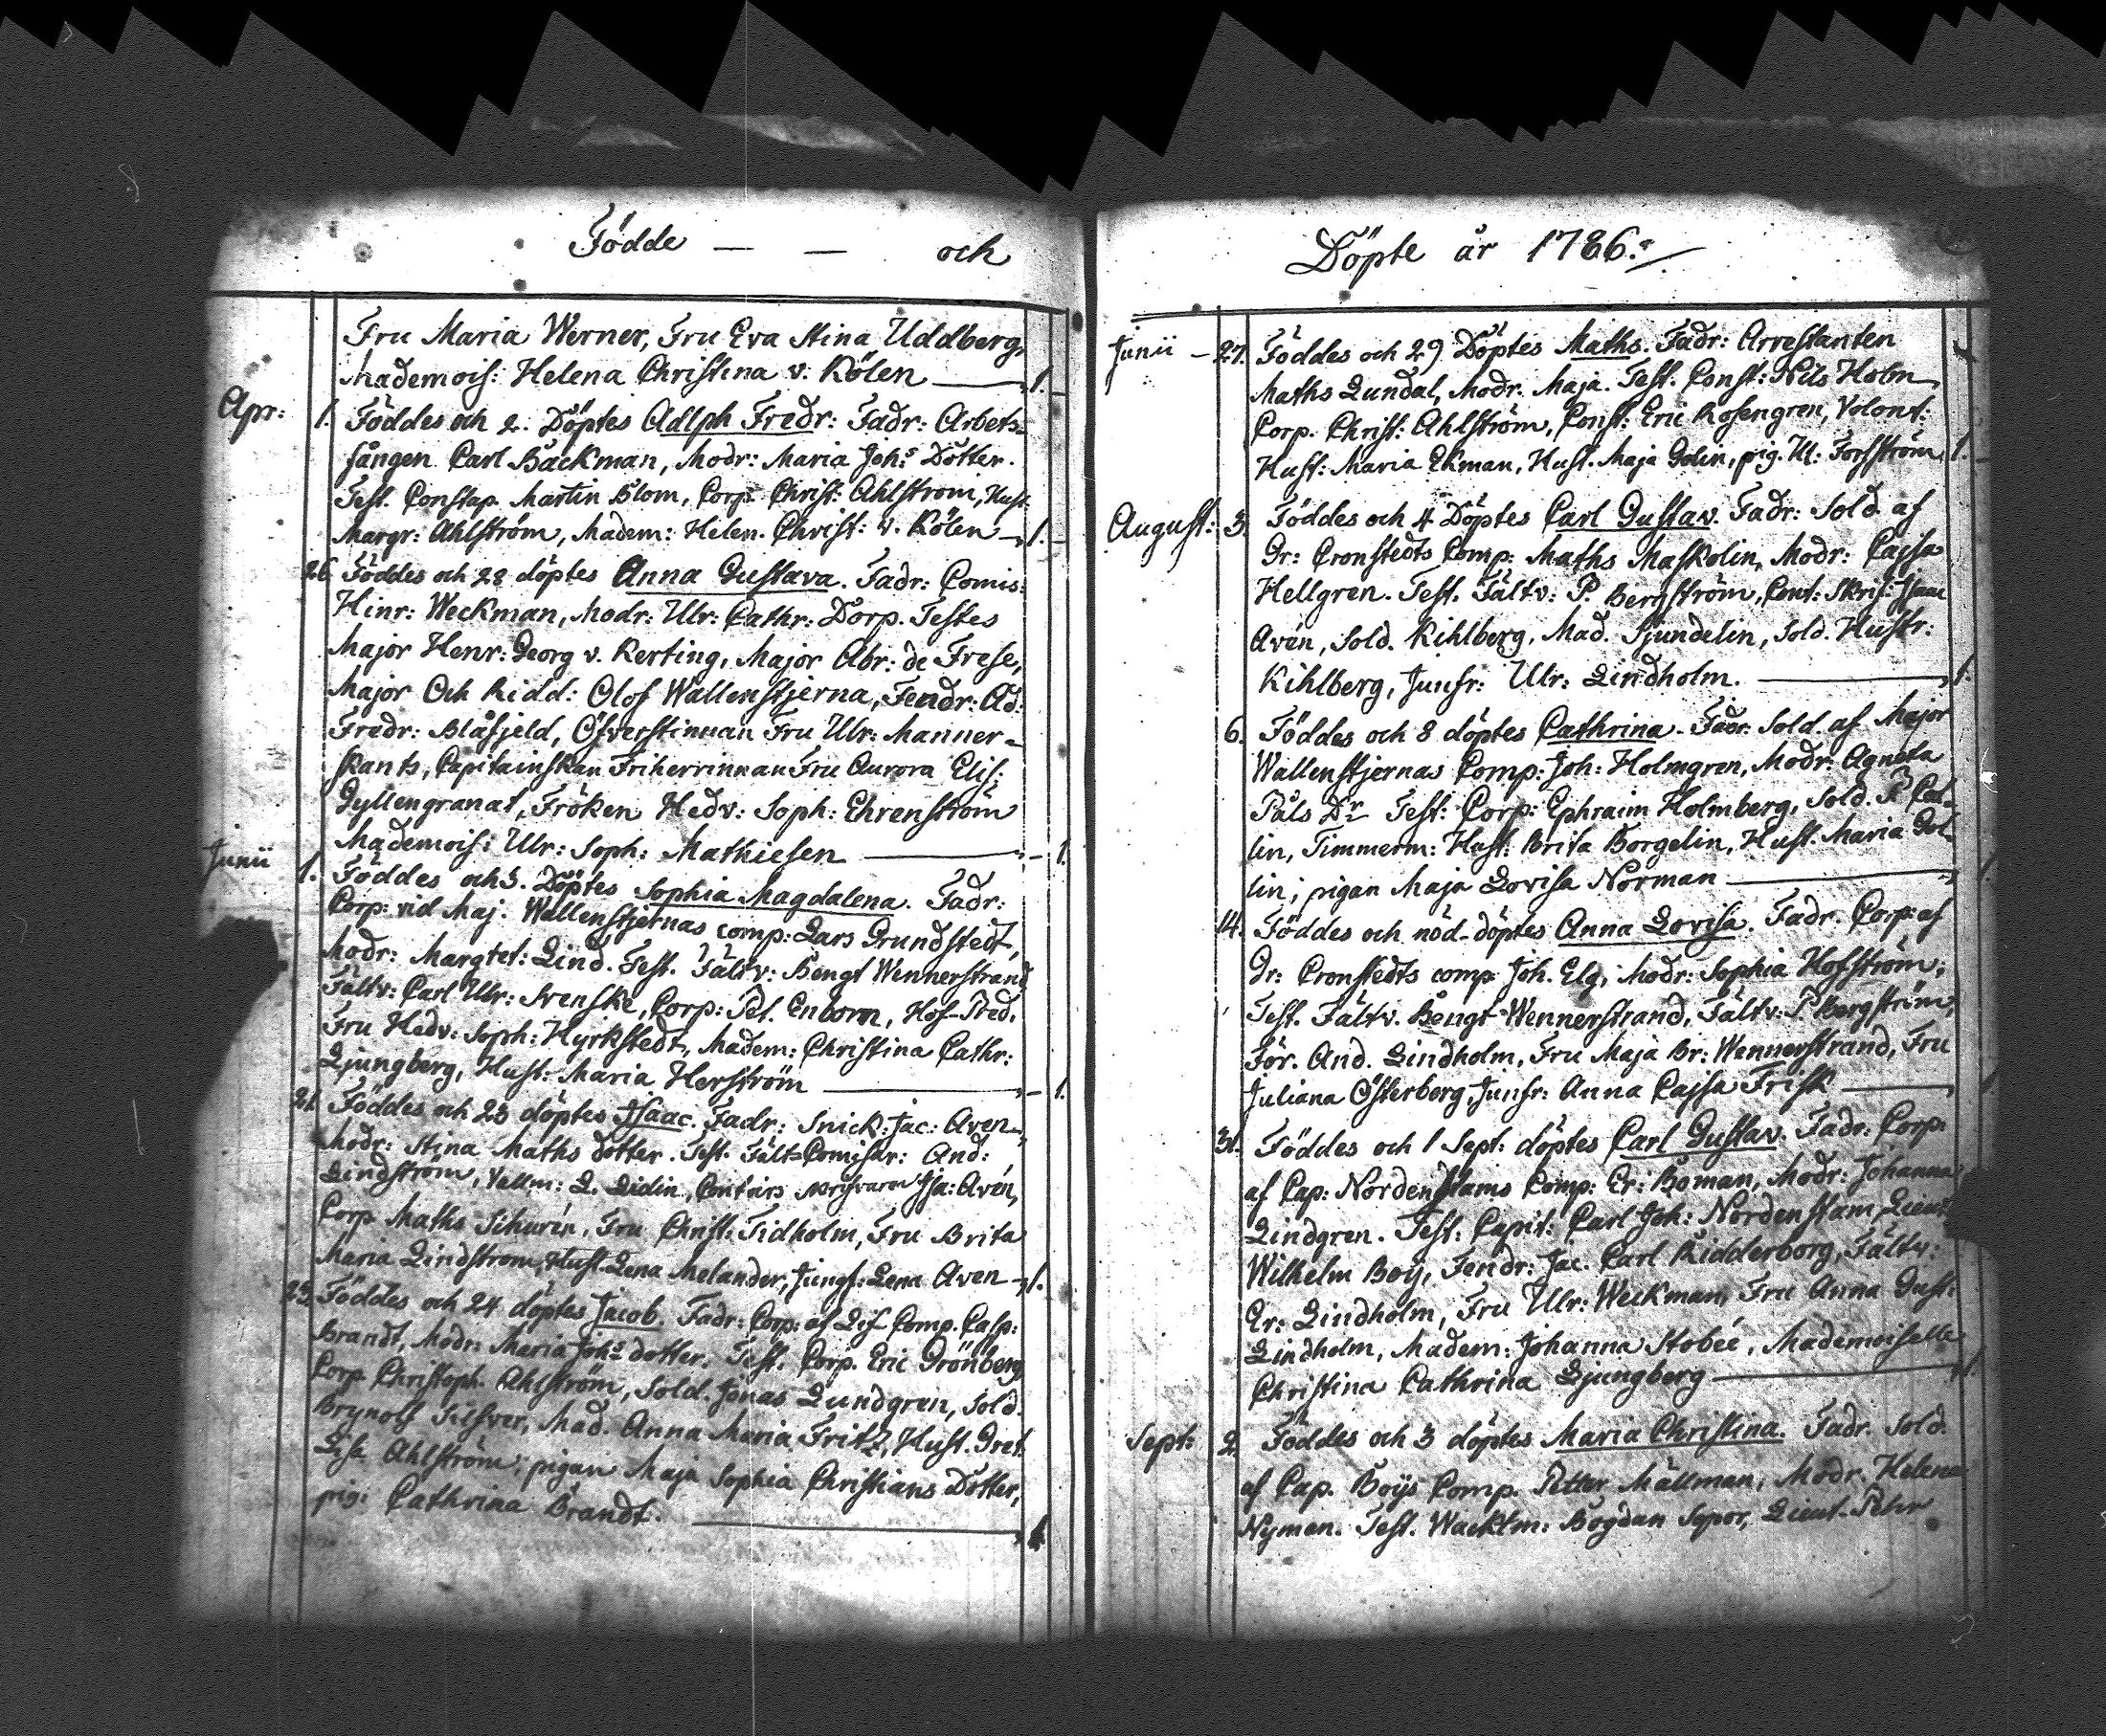 Födde — — och
Fru Maria Werner, Fru Eva Stina Uddberg,
Mademois: Helena Christina v. Kölen — 1.
Apr: 1. Föddes och 2. Döptes Adlph Fredr: Fadr: Arbets-
fången Carl Bäckman, Modr: Maria Johs Dotter.
Test. Constap. Martin Blom, Corp. Christ: Ahlström, Hust.
Margr: Ahlström, Madem: Helen. Christ: v. Kölen — 1.
26 Föddes och 28 döptes Anna Gustava. Fadr: Comis:
Hinr: Weckman, Modr: Ulr: Cathr: Dorp. Testes
Major Henr: Georg v. Kerting, Major Abr: de Frese,
Major Och Ridd: Olof Wallenstjerna, Fendr: Ad:
Fredr: Blåfjeld, Öfverstinnan Fru Ulr: Manner-
skants, Capitainskan Friherrinnan Fru Aurora Elis:
Gyllengranat, Fröken Hedv: Soph: Ehrenström
Mademois: Ulr: Soph: Mathiesen — 1.
Junii 1. Föddes och 3. Döptes Sophia Magdalena. Fadr:
Corp: vid Maj. Wallenstjernas comp: Lars Grundstedt,
Modr: Margret: Lind. Test. Fältv: Bengt Wennerstrand
Fältv: Carl Ulr: Svenske, Corp: Pet. Enborn, Hof-Pred.
Fru Hedv: Soph: Hyrkstedt, Madem: Christina Cathr:
Ljungberg, Hust: Maria Herström — 1.
21. Föddes och 23 döptes Isaac. Fadr: Snick: Jac: Aven,
Modr: Stina Maths dotter. Test. Fält-Comissr: And:
Lindström, Vallm: L. Lidin, Contoirs Isa: Avén,
Corp Maths Sihurén, Fru Christ: Tidholm, Fru Brita
Maria Lindström, Hust. Lena Melander, Jungf: Lena Aven — 1.
23. Föddes och 24 döptes Jacob. Fadr: Corp: af Lif Comp. Casp:
Brandt, Modr: Maria Johs dotter. Test. Corp. Eric Grönberg
Corp Christoph. Ahlström, Sold. Jonas Lundgren, Sold.
Brynolf Silfver, Mad. Anna Maria Fritz, Hust. Gret.
Lisa Ahlström, pigan Maja Sophia Christians Dotter,
pig: Cathrina Brandt. — 1
Döpte år 1786.
Junii — 27. Föddes och 29 Döptes Maths. Fadr: Arrestanten
Maths Lundal, Modr. Maja. Test. Const: Nils Holm,
Corp. Christ: Ahlström, Const: Eric Rosengren, Volont:
Hust: Maria Ekman, Hust. Maja Golin, pig. Ul: Forsström 1.
August: 3. Föddes och 4 Döptes Carl Gustav. Fadr: Sold af
Gr: Cronstedts Comp: Maths Maskolin, Modr: Cajsa
Hellgren. Test. Fältv: P. Bergström, Cont: Skrif: Isaac
Avén, Sold. Kihlberg, Mad. Sjundelin, Sold. Hustr:
Kihlberg, Junfr: Ulr: Lindholm. — 1.
6. Föddes och 8 döptes Cathrina. Fadr: Sold. af Major
Wallenstjernas Comp: Joh: Holmgren, Modr. Agneta
Påls Dr Test: Corp: Ephraim Holmberg, Sold. P.
lin, Timmerm: Hust: Brita Borgelin, Hust. Maria Gol-
lin, pigan Maja Lovisa Norman —
14. Föddes och nöd-döptes Anna Lovisa. Fadr. Corp: af
Gr: Cronstedts comp. Joh. Elg, Modr: Sophia Hofström;
Test. Fältv. Bengt Wennerstrand, Fältv: P Bergström,
För. And. Lindholm, Fru Maja Br: Wennerstrand, Fru
Juliana Österberg, Junfr: Anna Cajsa Frisk —
31. Föddes och 1 Sept: döptes Carl Gustav. Fadr: Corp:
af Cap: Nordenstams Comp: Er: Boman, Modr: Johanna
Lindgren. Test: Capit: Carl Joh: Nordenstam, Lieut:
Wilhelm Boij, Fendr: Jac. Carl Ridderborg, Fältv:
Er: Lindholm, Fru Ulr: Weckman, Fru Anna Gust:
Lindholm, Madem: Johanna Stobée, Mademoiselle
Christina Cathrina Ljungberg — 1.
Sept: 2. Föddes och 3 döptes Maria Christina. Fadr. Sold.
af Cap. Boijs Comp. Petter Mällman, Modr. Helena
Nyman. Test. Wacktm: Bogdan Sopor, Lieut. Pehr